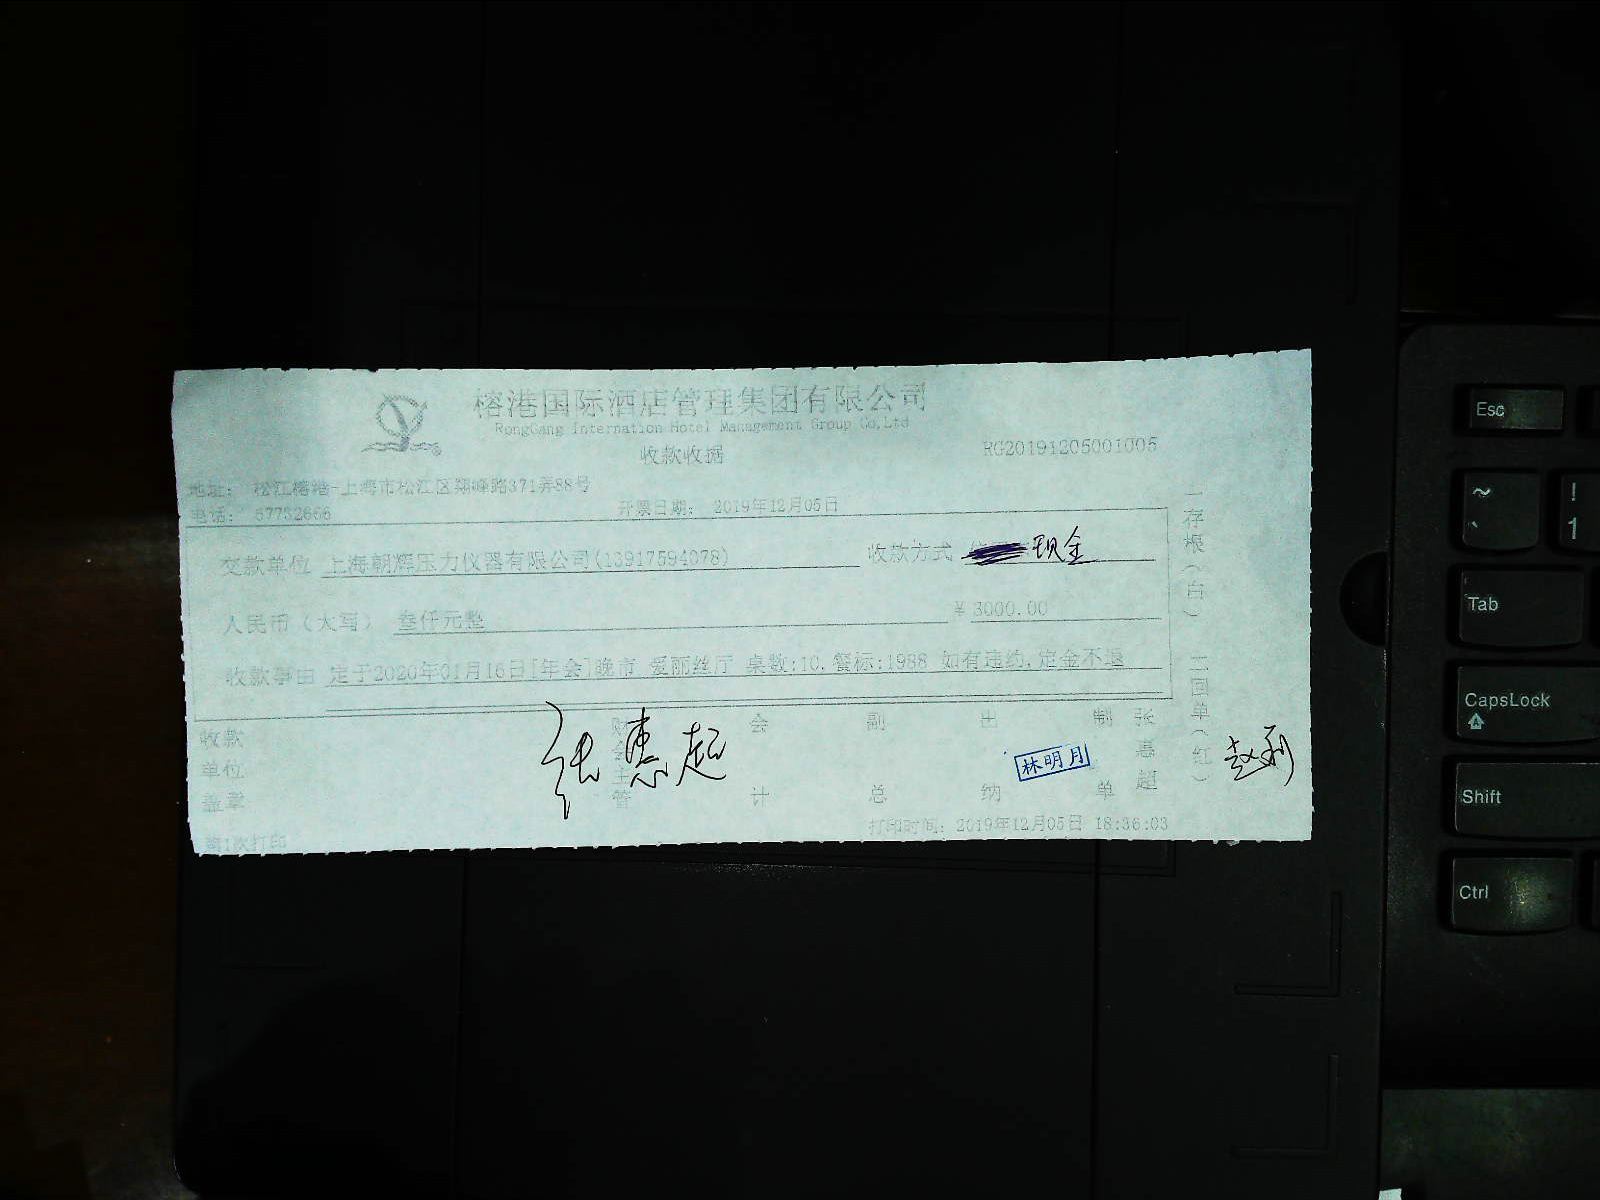 榕港国际酒店管理集团有限公司
RongGang Internation Hotel Management Group Co,Ltd
收款收据
RG20191205001005
地址: 松江榕港-上海市松江区翔峰路371弄88号
电话: 67732666
开票日期: 2019年12月05日
交款单位 上海朝辉压力仪器有限公司(13917594078) 收款方式 现金
人民币(大写) 叁仟元整 ¥ 3000.00
收款事由 定于2020年01月16日[年会]晚市 爱丽丝厅 桌数:10.餐标:1988 如有违约,定金不退
收款单位盖章
财会主管
张惠超
会计
副总
出纳
林明月
制单
张惠超
一存根(白) 二回单(红)
第1次打印
打印时间: 2019年12月05日 18:36:03
Esc
~
`
!
1
Tab
CapsLock
Shift
Ctrl